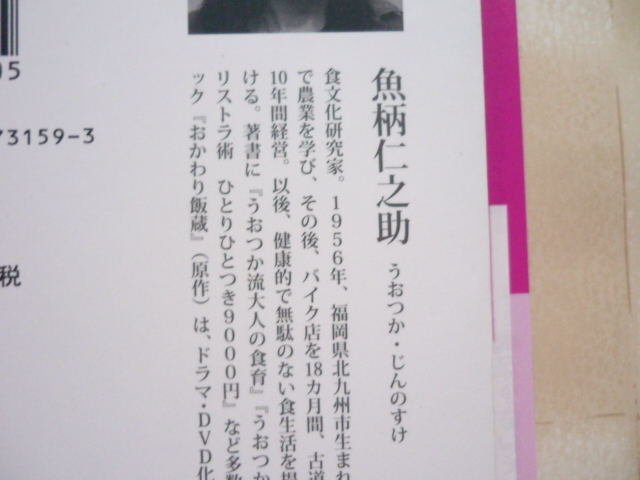 魚柄仁之助 うおつか・じんのすけ
食文化研究家。１９５６年、福岡県北九州市生まれ
で農業を学び、その後、バイク店を18カ月間、古道
10年間経営。以後、健康的で無駄のない食生活を提
ける。著書に『うおつか流大人の食育』『うおつか
リストラ術 ひとりひとつき９０００円』など多数
ック『おかわり飯蔵』（原作）は、ドラマ・ＤＶＤ化
05
73159-3
税